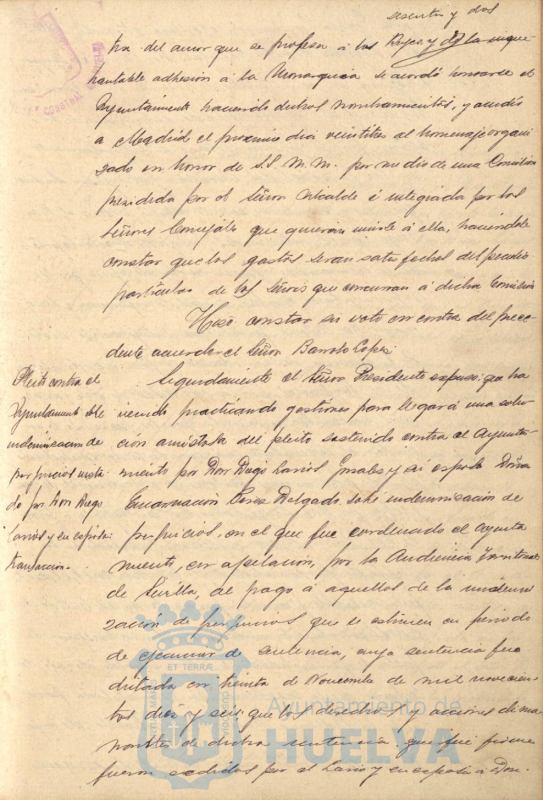 sesenta y dos
tra del amor que se profesa á los Reyes y de la inque
brantable adhesión á la Monarquia se acordó honrarse el
Ayuntamiento haciendo dichos nombramientos, y acudir
a Madrid el proximo dia veintitres al homenaje organi
zado en honor de SS. M. M. por medio de una Comision
presidida por el Señor Alcalde é integrada por los
Señores Concejales que quieran unirse á ella, haciendose
constar que los gastos seran satisfechos del peculio
particular de los Señores que concurran á dicha Comision
Hizo constar su voto en contra del prece
dente acuerdo el Señor Barroto Lopez
Pleito contra el
Ayuntamiento sobre
indemnizacion de
perjuicios insta-
do por Don Diego
Larios y su esposa:
transaccion.-
Seguidamente el Señor Presidente expuso: que ha
viendo practicando gestiones para llegar á una solu
cion amistosa del pleito sostenido contra el Ayunta-
miento por Don Diego Larios y su esposa Doña
Encarnacion Perez Delgado sobre indemnizacion de
perjuicios, en el que fue condenado el Ayunta
miento, en apelación, por la Audiencia Territorial
de Sevilla, al pago á aquellos de la indemni
zación de perjuicios que se estimen en periodo
de ejecucion de sentencia, cuya sentencia fue
dictada en treinta de Noviembre de mil novecien
tos diez y seis; que los derechos y acciones dima
nantes de dicha sentencia que fué firme
fueron cedidos por el Larios y su esposa á Don
Ayuntamiento de
HUELVA